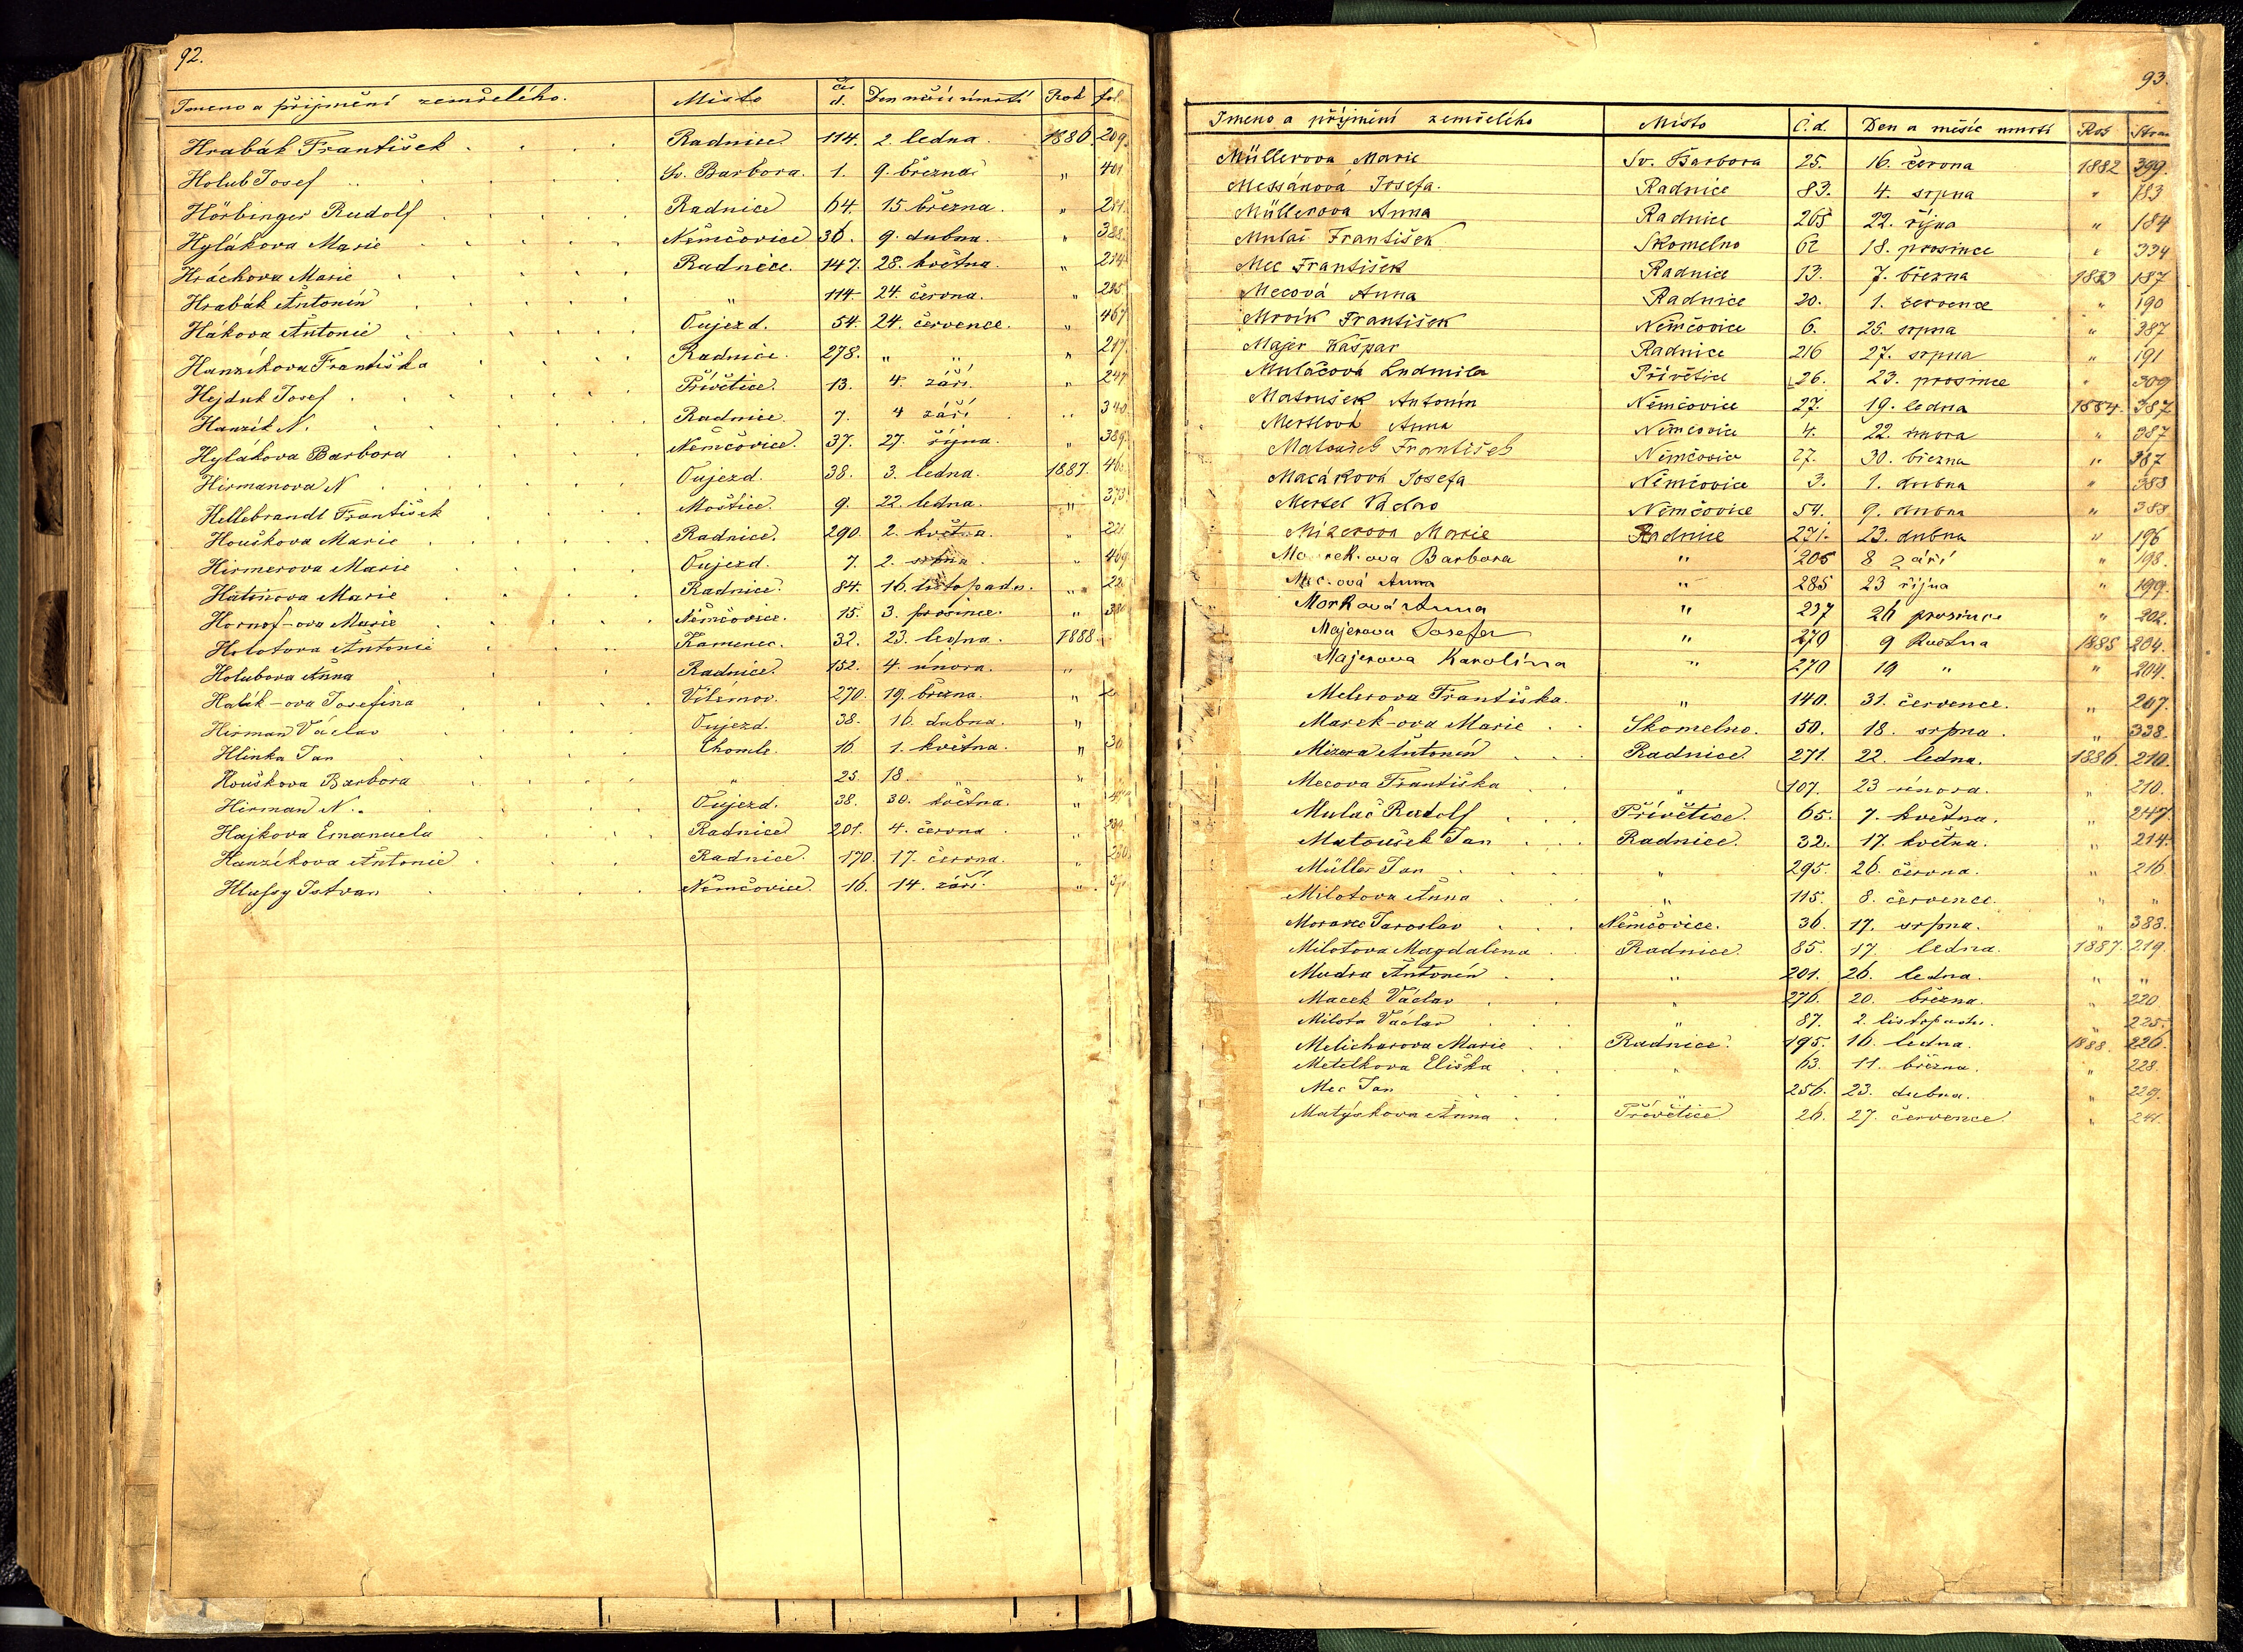 92.
Jmeno a přijmění zemřelého. Místo čis d. Den měsíc úmrtí Rok fol.
Hrabák František Radnice 114. 2. ledna. 1886. 209.
Holub Josef Sv. Barbora. 1. 9. března. " 401
Hörbinger Rudolf Radnice 64. 15 března. "
Hylákova Marie Němčovice 36. 9. dubna. " 388.
Hráchova Marie Radnice. 147. 28. května. " 214
Hrabák Antonín " 114. 24. června. " 215
Hákova Antonie Oujezd. 54. 24. července. " 467
Hanzíkova Františka Radnice. 278. " " " 217
Hejduk Josef Přívětice. 13. 4. září. 247
Hanzík N. Radnice 7. 4 září " 340
Hylákova Barbora Němčovice. 37. 27. října. " 389.
Hirmanova N Oujezd. 38. 3. ledna. 1887.
Hellebrandt František Moštice. 9. 22. ledna. " 373
Houškova Marie Radnice. 290. 2. května. " 221
Hirmerova Marie Oujezd. 7. 2. srpna. " 469
Hátinova Marie Radnice. 84. 16. listopadu. "
Hornof-ova Marie Němčovice. 15. 3. prosince. "
Holotova Antonie Kamenec. 32. 23. ledna. 1888.
Holubova Anna Radnice. 152. 4. února. "
Halík-ova Josefina Vilémov. 270. 19. března. "
Hirman Václav Oujezd. 38. 16. dubna. "
Hlinka Jan Chomle. 16 1. května. "
Houškova Barbora " 25. 18. " "
Hirman N. Oujezd. 38. 30. května. "
Hajkova Emanuela Radnice 201. 4. června. "
Hanzíkova Antonie Radnice. 170. 17. června. " 230
Hlussy Istvan Němčovice. 16. 14. září. "
93.
Jmeno a příjmení zemřelého Místo Č.d. Den a měsíc umrtí Rok Stran
Müllerova Marie Sv. Barbora 25. 16. června 1882 399.
Messánová Josefa. Radnice 83. 4. srpna " 183
Müllerova Anna Radnice 265 22. října " 184
Mulač František Skomelno 62 18. prosince " 334
Mec František Radnice 13. 7. března 1883 187
Mecová Anna Radnice 20. 1. července " 190
Mrvík František Němčovice 6. 25. srpna " 387
Majer Kašpar Radnice 216 27. srpna " 191
Mulačová Ludmila Přívětice 26. 23. prosince " 309
Matoušek Antonín Němčovice 27. 19. ledna 1884. 387
Merslová Anna Němčovice 4. 22. února " 387
Matoušek František Němčovice 27. 30. března " 387
Macáková Josefa Němčovice 3. 1. dubna " 388
Mersel Václav Němčovice 54. 9. dubna " 388
Mizerova Marie Radnice 271. 23. dubna " 196
Barbora " 205 8 září " 198.
Mec-ová Anna " 285 23 října " 199.
Morková Anna " 237 26 prosince " 202.
Majerova Josefa " 270 9 Května 1885 204.
Majerova Karolína " 270 19 " " 204.
Melerova Františka. " 140. 31. července. " 207.
Marek-ova Marie Skomelno. 50. 18. srpna. " 338.
Mizera Antonín Radnice 271. 22. ledna. 1886. 210.
Mecova Františka " 107. 23 února. " 210.
Mulač Rudolf Přívětice. 65. 7. května. " 247
Matoušek Jan Radnice. 32. 17. května. " 214.
Müller Jan " 295. 26. června. " 216
Milotova Anna " 115. 8. července. " "
Moravec Jaroslav Němčovice. 36. 17. srpna. " 388.
Milotova Magdalena Radnice. 85. 17 ledna. 1887. 219.
Mudra Antonín " 201. 26. ledna. " "
Macek Václav " 276. 20. března. " 220
Milota Václav " 87. 2. listopadu. " 225.
Melicharova Marie Radnice. 195. 16. ledna. 1888. 226.
Metelkova Eliška " 63. 11. března. " 228.
Mec Jan " 256. 23. dubna. " 229.
Matýskova Anna Přívětice 26. 27. července. " 241.